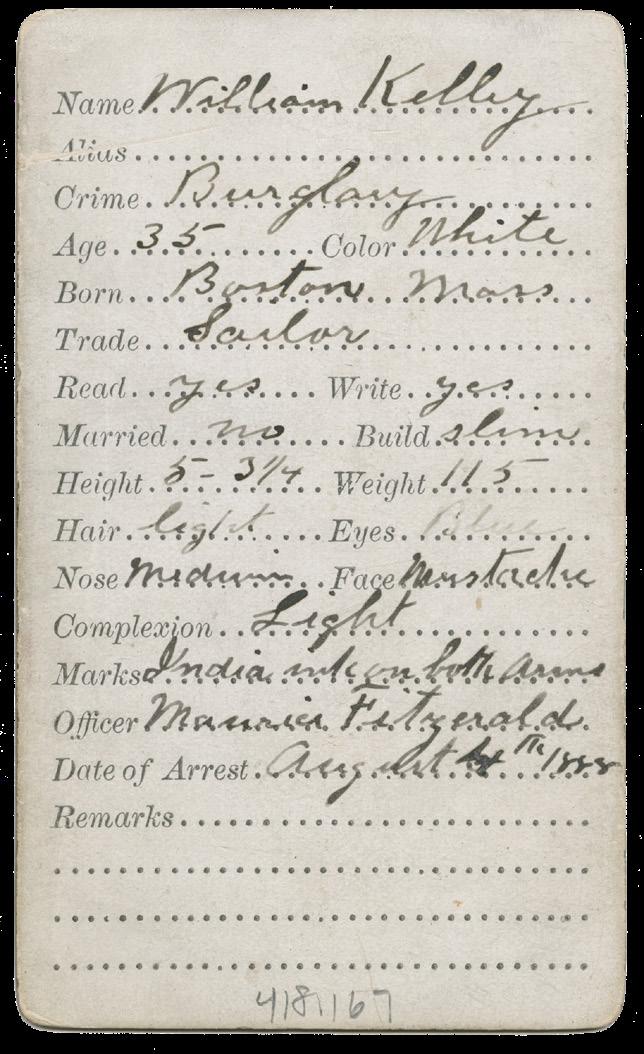 Name William Kelley
Alias
Crime Burglary
Age 35 Color White
Born Boston Mass
Trade Sailor
Read yes Write yes
Married no Build slim
Height 5-3 1/4 Weight 115
Hair light Eyes Blue
Nose Medium Face Mustache
Complexion Light
Marks India ink on both arms
Officer Maurice Fitzgerald
Date of Arrest August 1888
Remarks